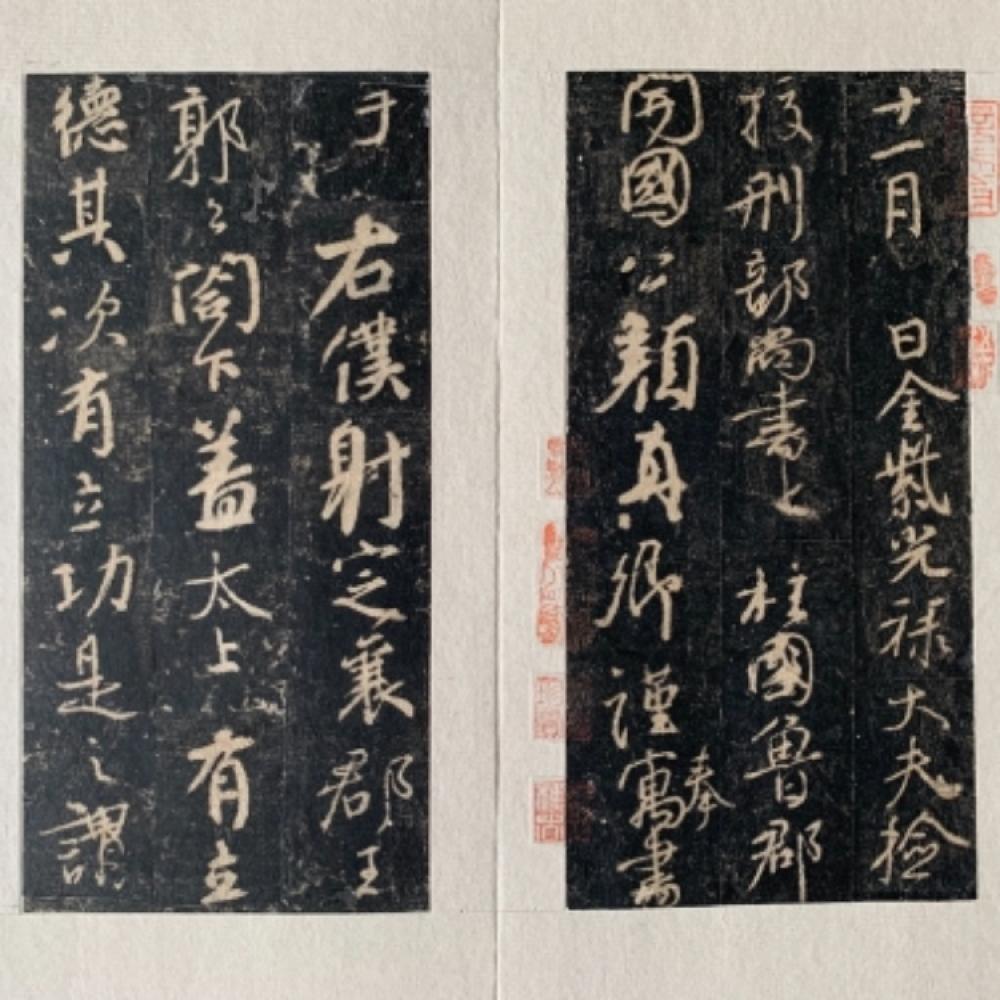 十一月 日金紫光祿大夫撿
挍刑部尚書上 柱國魯郡
開國公顏真卿謹奉寓書
于 右僕射定襄郡王
郭公閤下蓋太上有立
德其次有立功是之謂